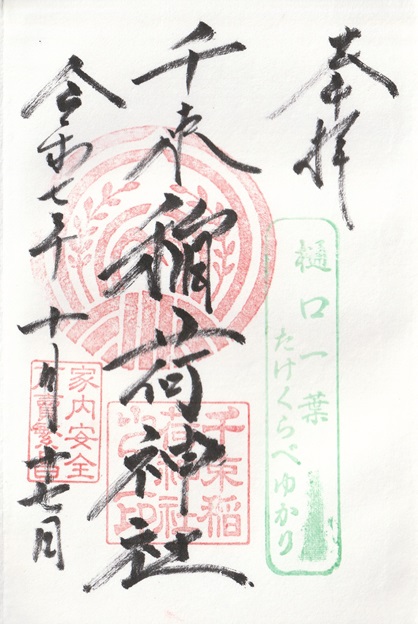 奉拝
樋口一葉
たけくらべゆかり
千束稲荷神社
千束稲
荷神社
之印
家内安全
商賣繁昌
令和七年十月廿七日